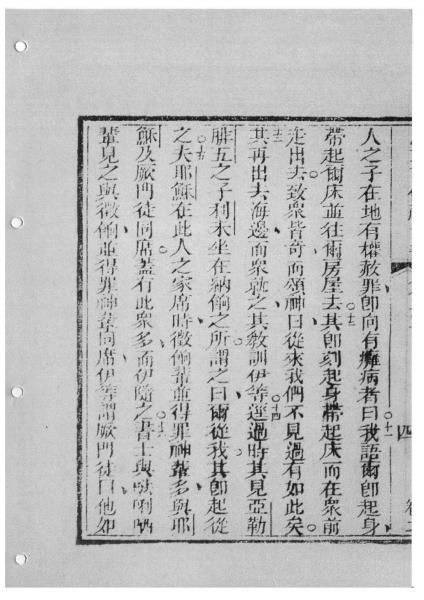 四
人之子在地有權赦罪卽向有癱病者曰我語爾卽起身
帶起爾床並往爾房屋去其卽刻起身帶起床而在眾前
走出去致眾皆奇而頌神曰從來我們不見過有如此矣
其再出去海邊而眾就之其教訓伊等逕過時其見亞勒
腓五之子利未坐在納餉之所謂之曰爾從我其卽起從
之夫耶穌在此人之家席時徵餉輩並得罪神輩多與耶
穌及厥門徒同席蓋有此眾多而伊隨之書士與唎
輩見之與徵餉並得罪神輩同席伊等謂厥門徒曰他如